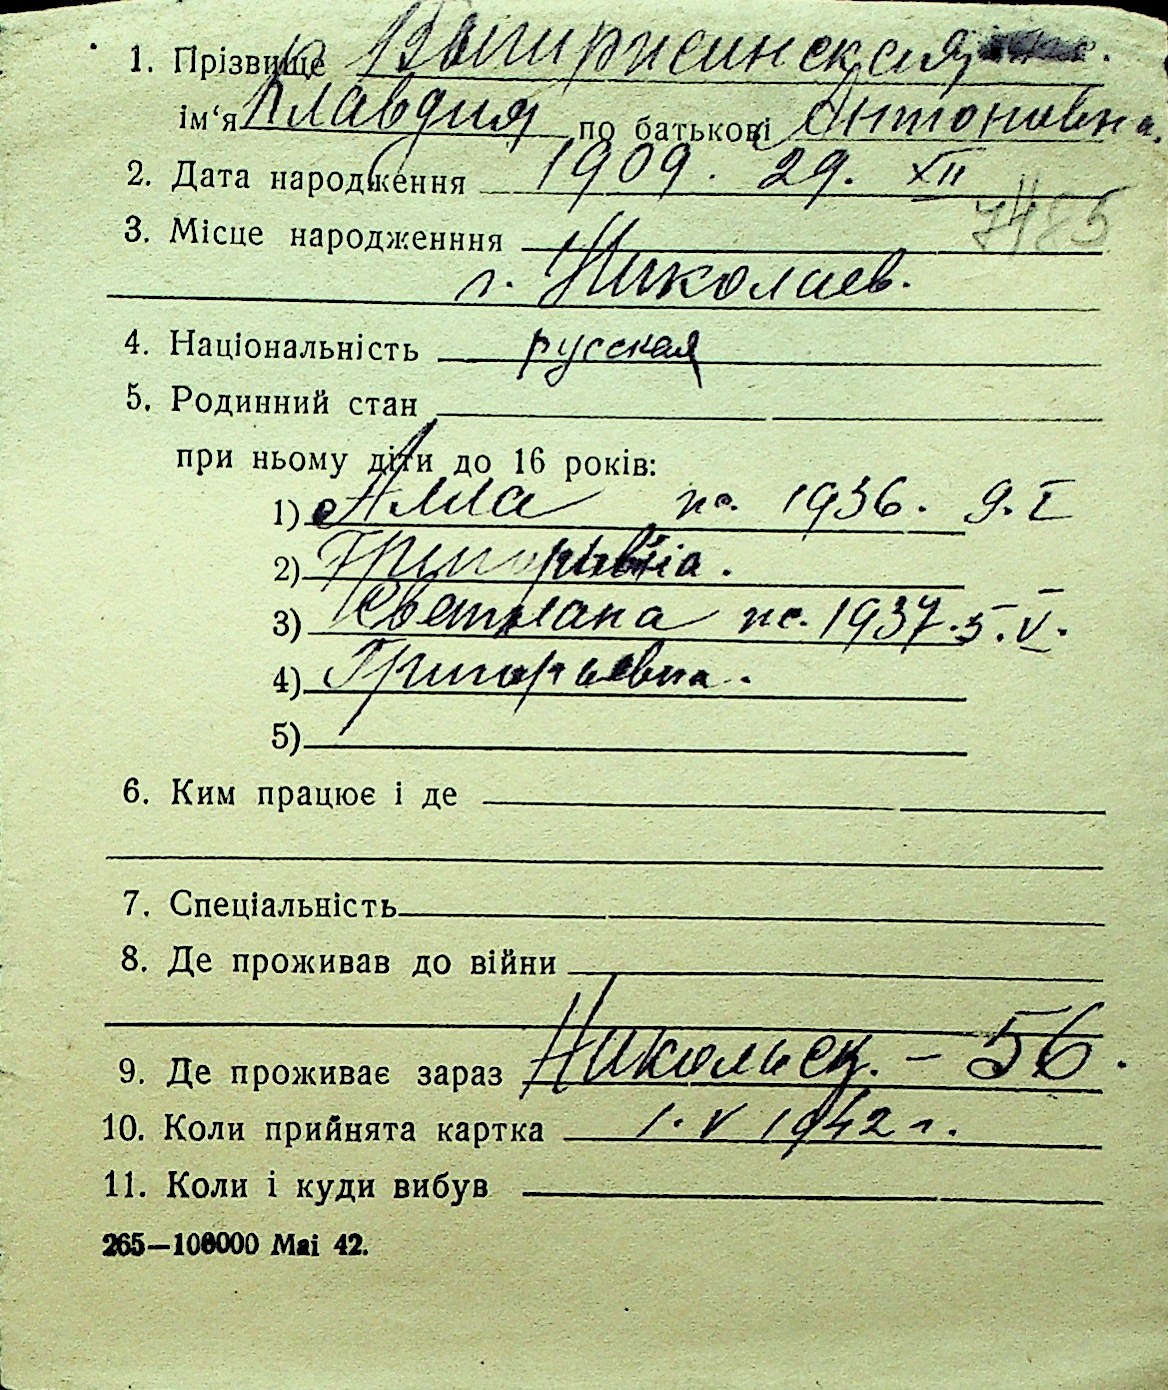 1. Прізвище
ім‘я Клавдия по батькові Антоновна.
2. Дата народження 1909. 29. XII
3. Місце народженння 7485
г. Николаев.
4. Національність русская
5. Родинний стан
при ньому діти до 16 років:
1) Алла 1936. 9. I
2)
3) Светлана 1937. 5. V.
4) Григорьевна.
5)
6. Ким працює і де
7. Спеціальність
8. Де проживав до війни
9. Де проживає зараз Никольск. – 56.
10. Коли прийнята картка 1. V 1942 г.
11. Коли і куди вибув
265—100000 Маі 42.